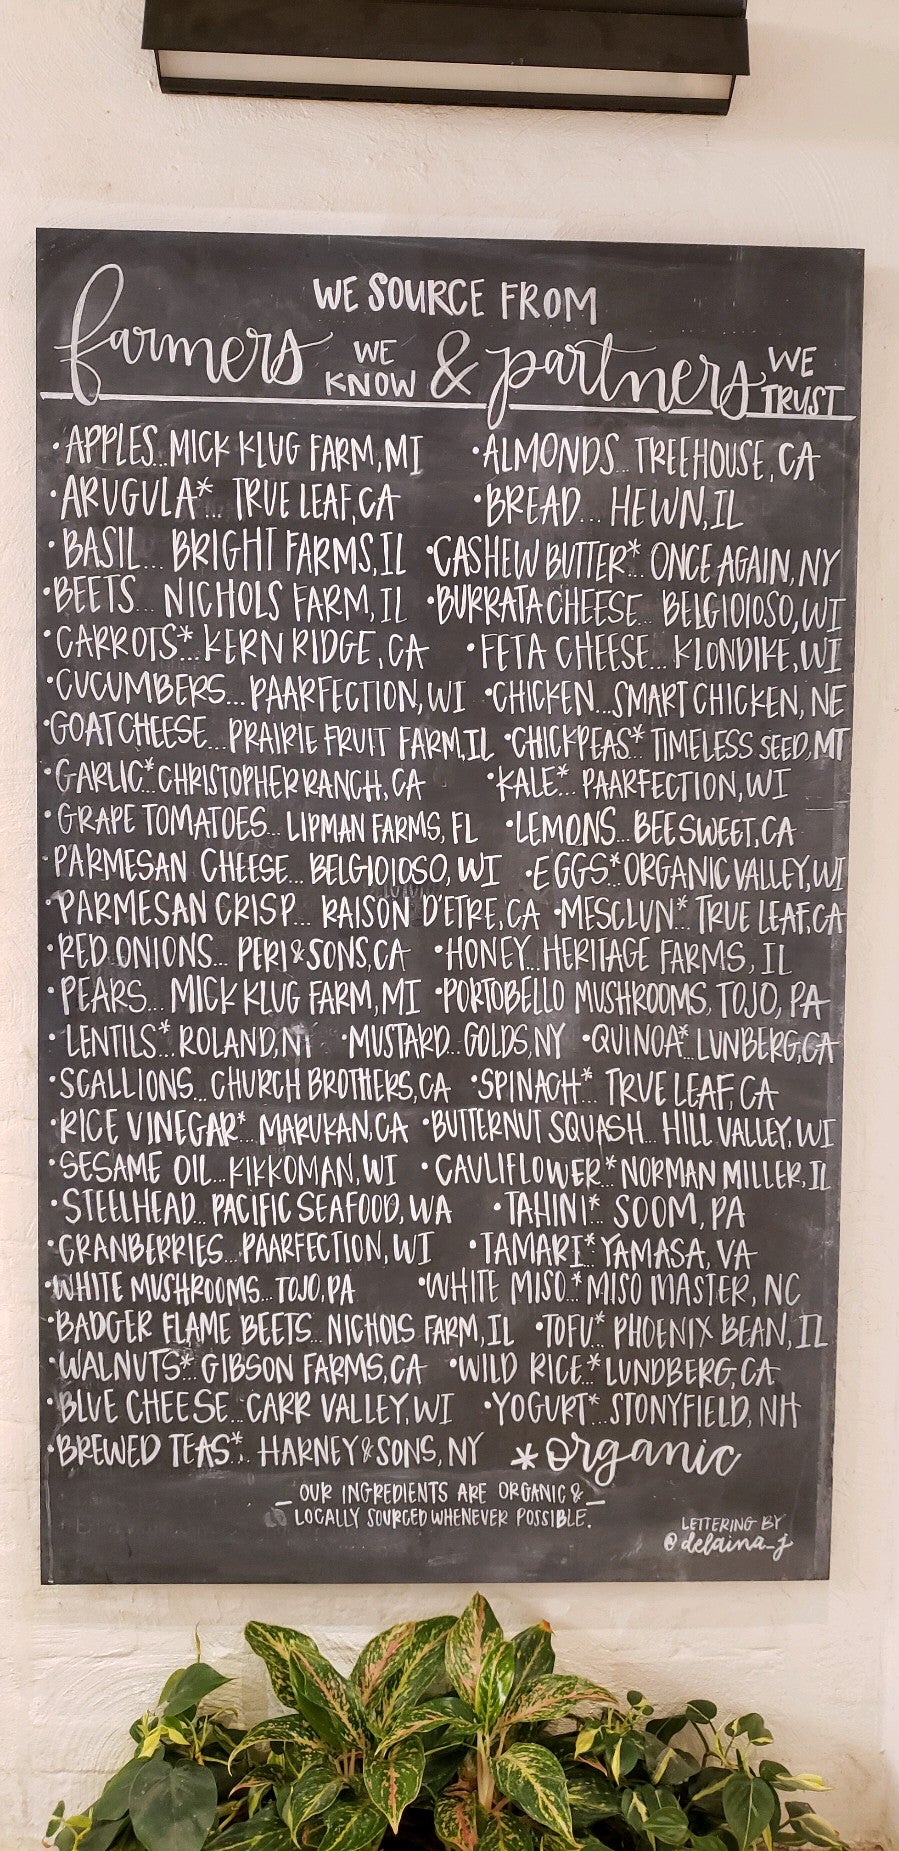 WE SOURCE FROM
farmers WE KNOW & partners WE TRUST
• APPLES... MICK KLUG FARM, MI • ALMONDS... TREEHOUSE, CA
• ARUGULA*... TRUE LEAF, CA • BREAD... HEWN, IL
• BASIL... BRIGHT FARMS, IL • CASHEW BUTTER*... ONCE AGAIN, NY
• BEETS... NICHOLS FARM, IL • BURRATA CHEESE... BELGIOIOSO, WI
• CARROTS*... KERN RIDGE, CA • FETA CHEESE... KLONDIKE, WI
• CUCUMBERS... PAARFECTION, WI • CHICKEN... SMART CHICKEN, NE
• GOAT CHEESE... PRAIRIE FRUIT FARM, IL • CHICKPEAS* TIMELESS SEED, MT
• GARLIC* CHRISTOPHER RANCH, CA • KALE*... PAARFECTION, WI
• GRAPE TOMATOES... LIPMAN FARMS, FL • LEMONS... BEE SWEET, CA
• PARMESAN CHEESE... BELGIOIOSO, WI • EGGS* ORGANIC VALLEY, WI
• PARMESAN CRISP... RAISON D'ETRE, CA • MESCLUN* TRUE LEAF, CA
• RED ONIONS... PERI & SONS, CA • HONEY... HERITAGE FARMS, IL
• PEARS... MICK KLUG FARM, MI • PORTOBELLO MUSHROOMS, TOJO, PA
• LENTILS*... ROLAND, NY • MUSTARD... GOLDS, NY • QUINOA*... LUNBERG, CA
• SCALLIONS... CHURCH BROTHERS, CA • SPINACH*... TRUE LEAF, CA
• RICE VINEGAR*.. MARUKAN, CA • BUTTERNUT SQUASH... HILL VALLEY, WI
• SESAME OIL... KIKKOMAN, WI • CAULIFLOWER* NORMAN MILLER, IL
• STEELHEAD... PACIFIC SEAFOOD, WA • TAHINI*.. SOOM, PA
• CRANBERRIES... PAARFECTION, WI • TAMARI*.. YAMASA, VA
• WHITE MUSHROOMS... TOJO, PA • WHITE MISO* MISO MASTER, NC
• BADGER FLAME BEETS... NICHOLS FARM, IL • TOFU*.. PHOENIX BEAN, IL
• WALNUTS*... GIBSON FARMS, CA • WILD RICE*.. LUNDBERG, CA
• BLUE CHEESE... CARR VALLEY, WI • YOGURT*... STONYFIELD, NH
• BREWED TEAS*... HARNEY & SONS, NY * organic
— OUR INGREDIENTS ARE ORGANIC & —
LOCALLY SOURCED WHENEVER POSSIBLE.
LETTERING BY
@delaina_j